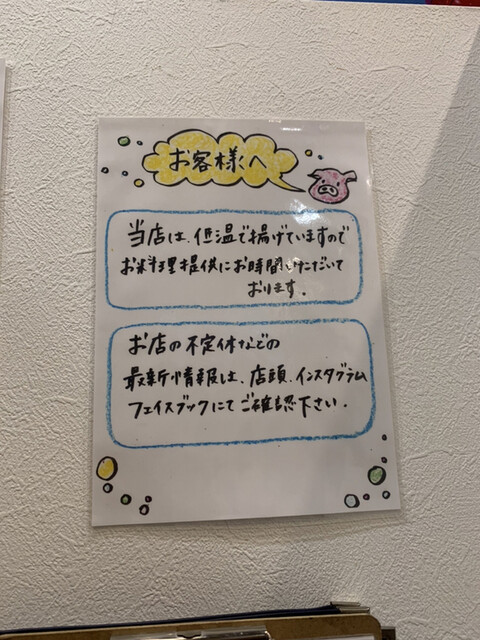 お客様へ
当店は、低温で揚げていますので
お料理提供にお時間いただいて
おります。
お店の不定休などの
最新情報は、店頭、インスタグラム
フェイスブックにてご確認下さい。